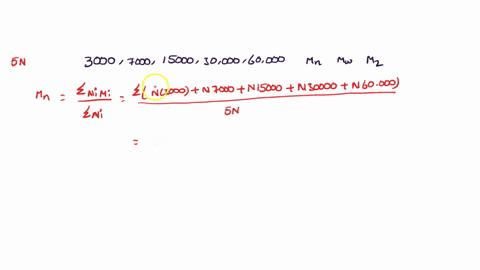 5N 3000, 7000, 15000, 30,000, 60,000 Mn Mw Mz
Mn = ΣNiMi / ΣNi = Σ(N(3000) + N7000 + N15000 + N30000 + N60.000) / 5N
=